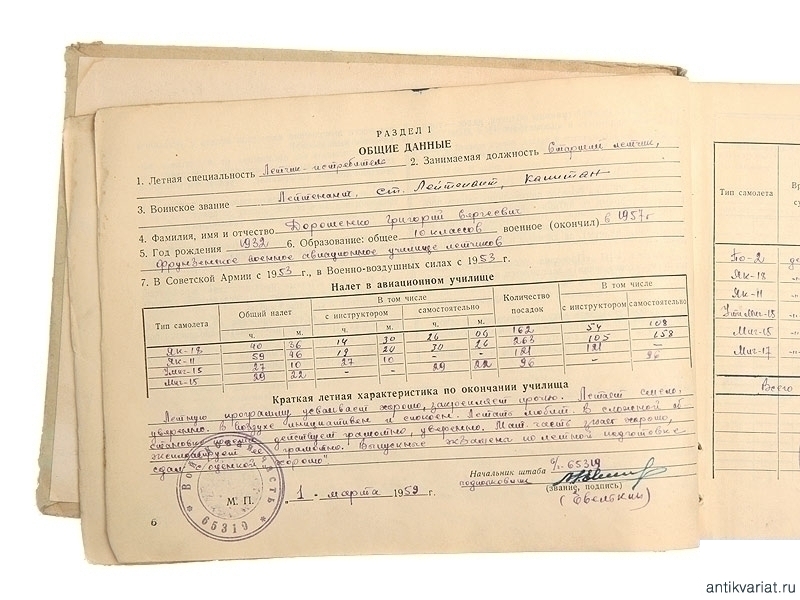 РАЗДЕЛ I
ОБЩИЕ ДАННЫЕ
1. Летная специальность Летчик-истребитель 2. Занимаемая должность Старший летчик,
3. Воинское звание Лейтенант, ст. Лейтенант, капитан
4. Фамилия, имя и отчество Дорошенко Григорий Сергеевич
5. Год рождения 1932 6. Образование: общее 10 классов военное (окончил) в 1957г
Фрунзенское военное авиационное училище летчиков
7. В Советской Армии с 1953 г., в Военно-воздушных силах с 1953 г.
Налет в авиационном училище
Тип самолета Общий налет В том числе Количество посадок В том числе
с инструктором самостоятельно с инструктором самостоятельно
ч. м. ч. м. ч. м.
Як-18 40 36 14 30 26 06 162 54 108
Як-11 59 46 19 20 30 26 263 105 158
Умиг-15 27 10 27 10 - - 121 121 -
Миг-15 29 22 - - 29 22 96 - 96
Краткая летная характеристика по окончании училища
Летную программу усваивает хорошо, закрепляет прочно. Летает смело,
уверенно. В воздухе инициативен и спокоен. Летать любит. В сложной об
становке полета действует грамотно, уверенно. Мат. часть знает хорошо,
эксплуатирует ее грамотно. Выпускные экзамены по летной подготовке
сдал с оценкой "хорошо"
Начальник штаба в/ч 65319
подполковник
(звание, подпись)
М. П. 1 - марта 1959 г.
Войсковая часть
* 65319 *
6
Тип самолета
По-2
Як-18
Як-11
Умиг-15
Миг-15
Миг-17
Всего
antikvariat.ru